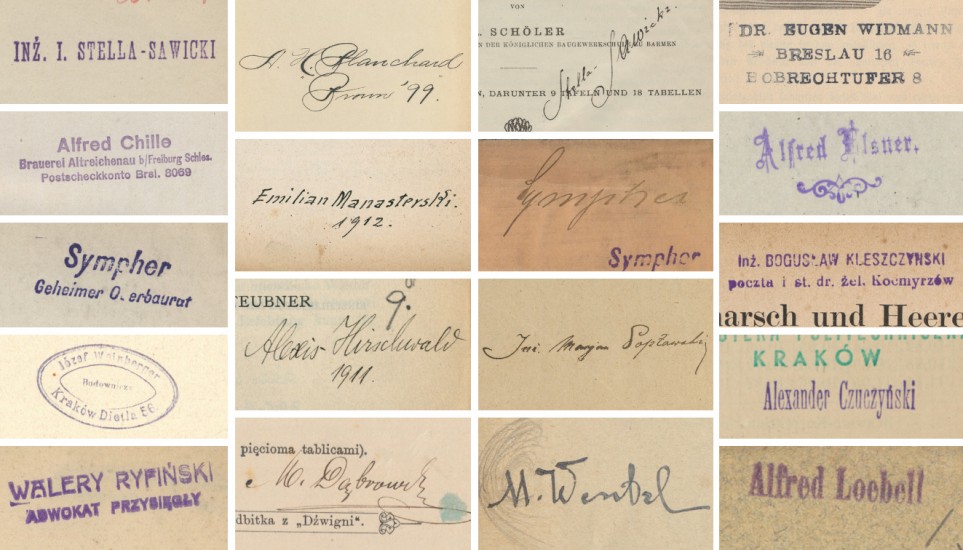 INŻ. I. STELLA-SAWICKI
Alfred Chille
Brauerei Altreichenau b/Freiburg Schles.
Postscheckkonto Bresl. 8069
Sympher
Geheimer O. erbaurat
Józef Weinberger
Budowniczy
Kraków Dietla 56.
WALERY RYPIŃSKI
ADWOKAT PRZYSIĘGŁY
A. H. Blanchard
Brown '99.
Emilian Manasterski.
1912.
TEUBNER
9.
Alexis Hirschwald
1911.
pięcioma tablicami).
M. Dąbrowski
dbitka z „Dźwigni".
VON
. SCHÖLER
N DER KÖNIGLICHEN BAUGEWERKSCHULE ZU BARMEN
Stella-Sawicki.
N, DARUNTER 9 TAFELN UND 18 TABELLEN
Sympher
Sympher
Inż. Maryan Popławski
M. Wentzel
DR. EUGEN WIDMANN
BRESLAU 16
BOBRECHTUFER 8
Alfred Elsner.
Inż. BOGUSŁAW KLESZCZYŃSKI
poczta i st. dr. żel. Kocmyrzów
marsch und Heere
KRAKÓW
Alexander Czuczyński
Alfred Loebell